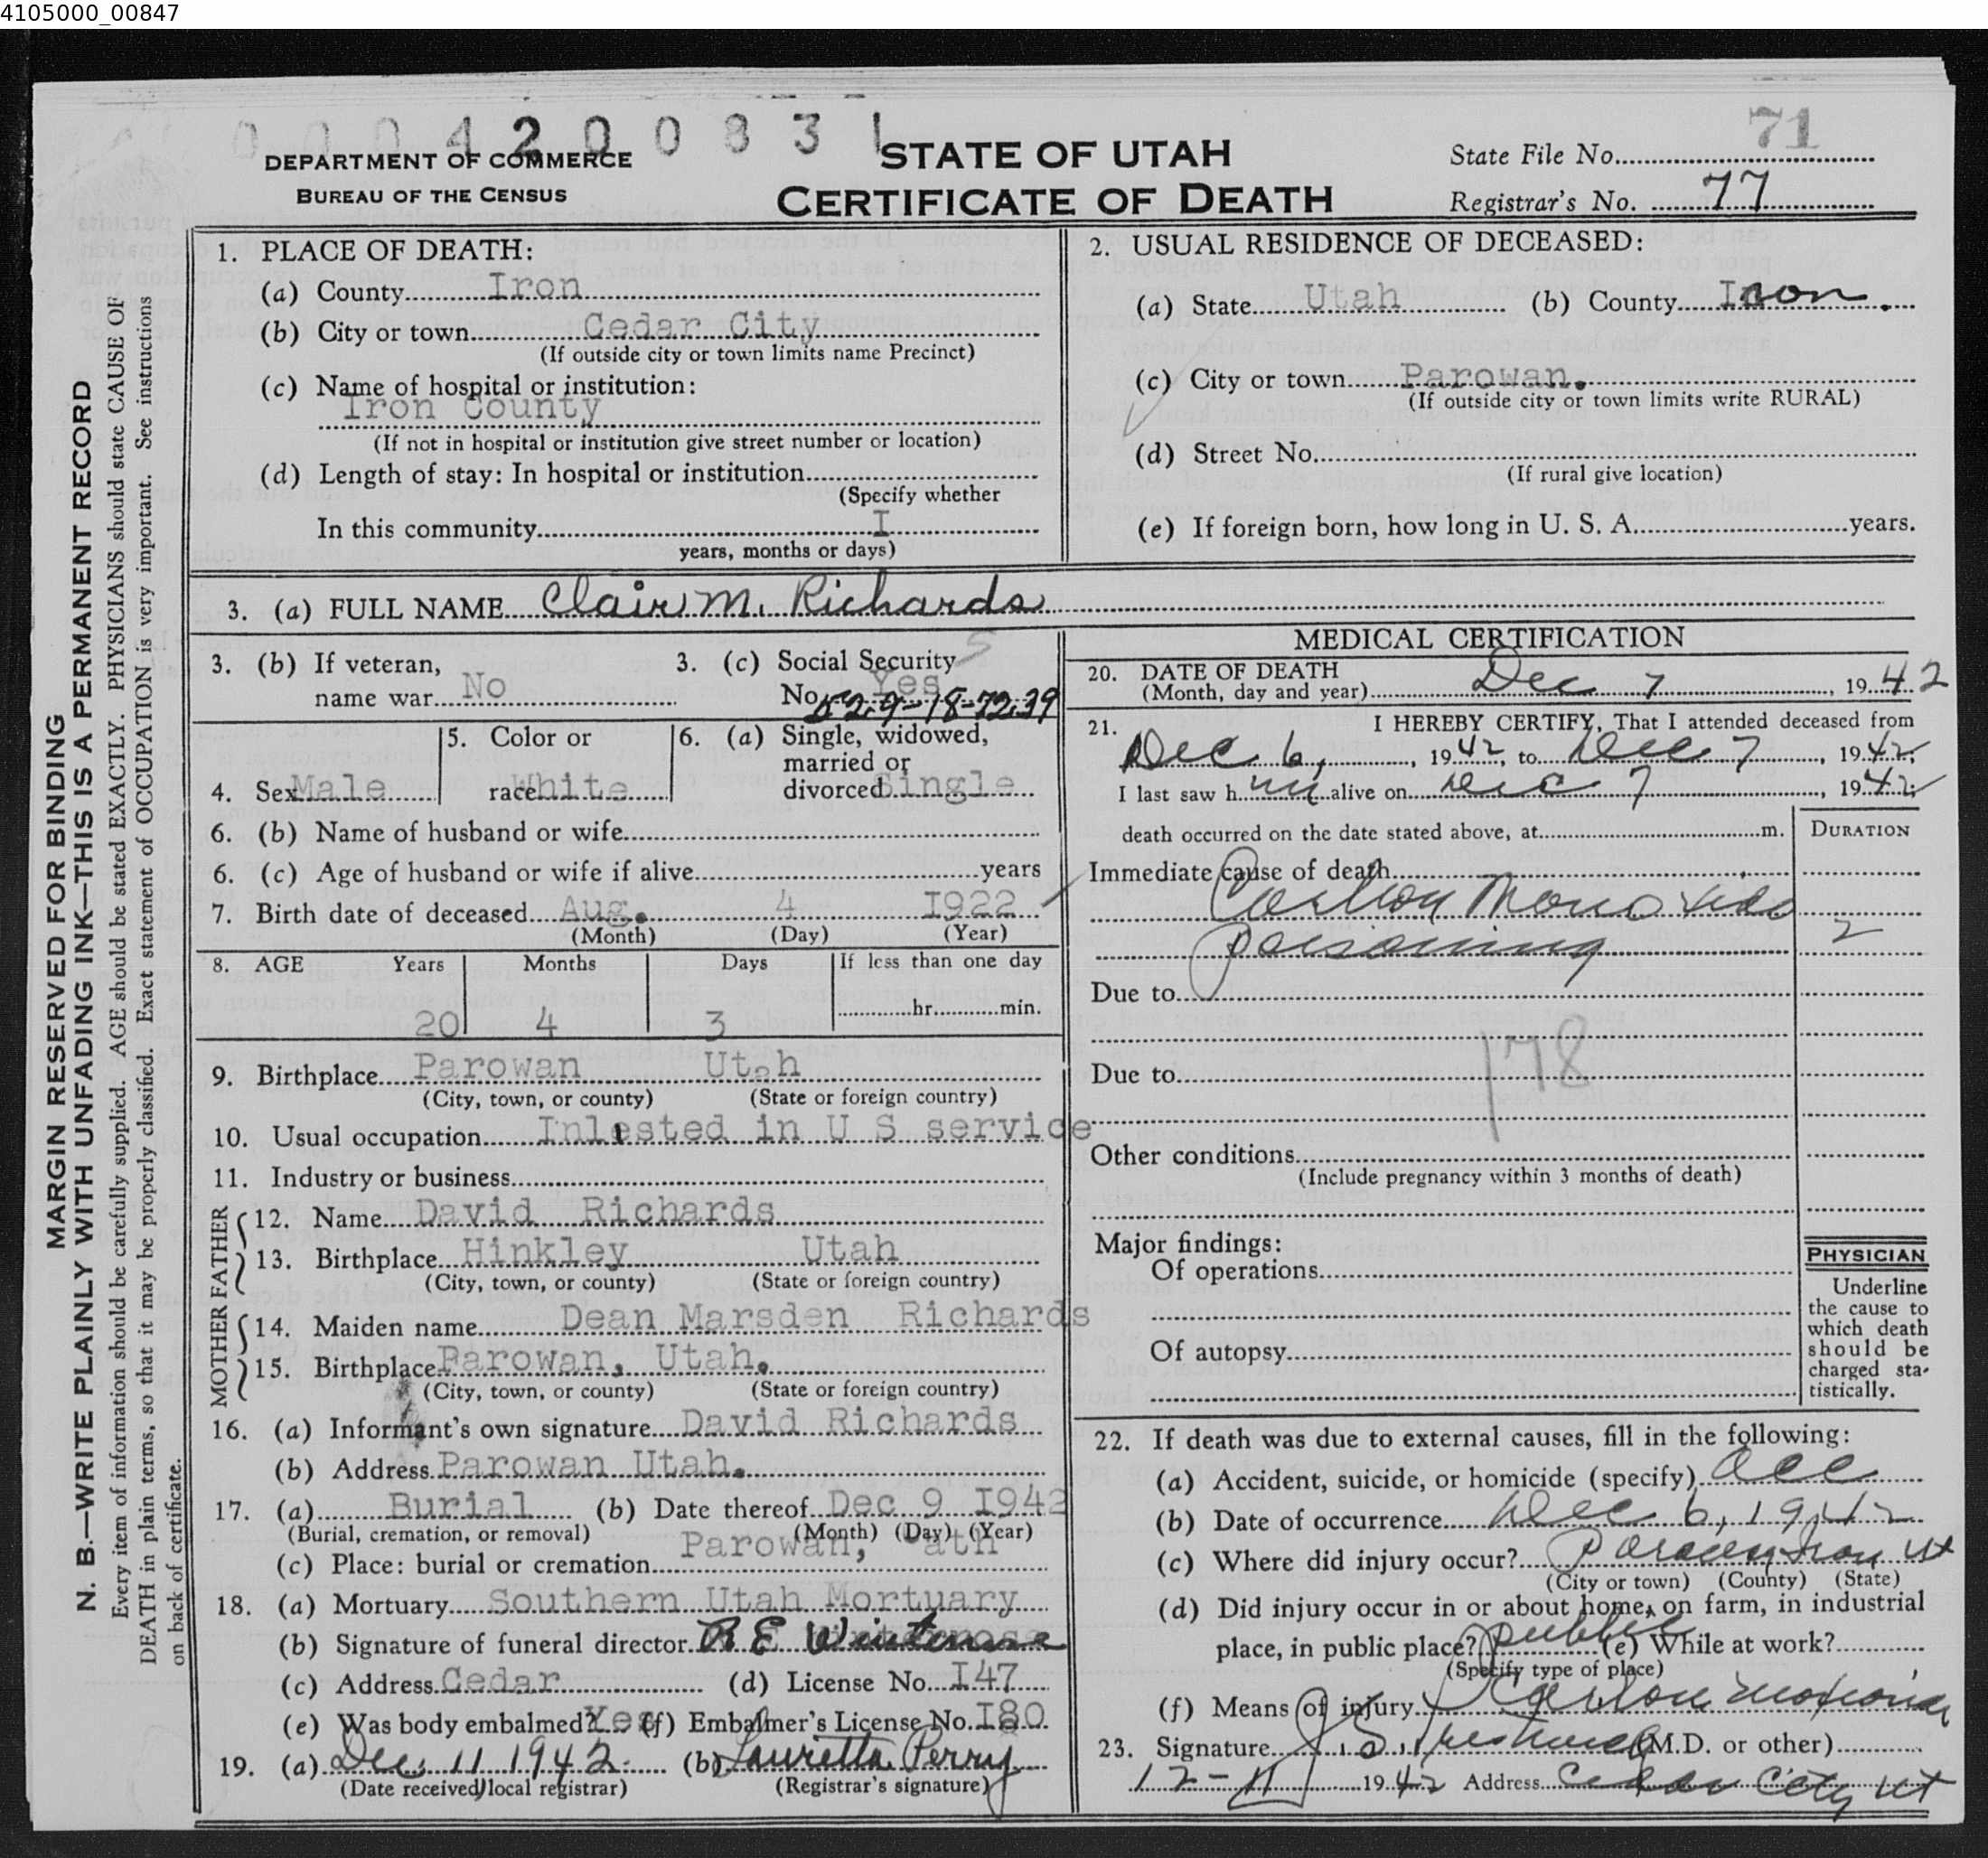 4105000_00847
000420083 1
71
DEPARTMENT OF COMMERCE
BUREAU OF THE CENSUS
STATE OF UTAH
CERTIFICATE OF DEATH
State File No.
Registrar's No. 77
MARGIN RESERVED FOR BINDING
N. B.—WRITE PLAINLY WITH UNFADING INK—THIS IS A PERMANENT RECORD
Every item of information should be carefully supplied. AGE should be stated EXACTLY. PHYSICIANS should state CAUSE OF
DEATH in plain terms, so that it may be properly classified. Exact statement of OCCUPATION is very important. See instructions
on back of certificate.
1. PLACE OF DEATH:
(a) County Iron
(b) City or town Cedar City
(If outside city or town limits name Precinct)
(c) Name of hospital or institution:
Iron County
(If not in hospital or institution give street number or location)
(d) Length of stay: In hospital or institution
(Specify whether
In this community I
years, months or days)
2. USUAL RESIDENCE OF DECEASED:
(a) State Utah (b) County Iron.
(c) City or town Parowan.
(If outside city or town limits write RURAL)
(d) Street No.
(If rural give location)
(e) If foreign born, how long in U. S. A. years.
3. (a) FULL NAME Clair M. Richards
3. (b) If veteran,
name war No
3. (c) Social Security
No. Yes
529-18-7239
4. Sex Male
5. Color or
race White
6. (a) Single, widowed,
married or
divorced Single
6. (b) Name of husband or wife
6. (c) Age of husband or wife if alive years
7. Birth date of deceased Aug. 4 1922
(Month) (Day) (Year)
8. AGE Years Months Days If less than one day
20 4 3 hr. min.
9. Birthplace Parowan Utah
(City, town, or county) (State or foreign country)
10. Usual occupation Inlested in U S service
11. Industry or business
FATHER
12. Name David Richards
13. Birthplace Hinkley Utah
(City, town, or county) (State or foreign country)
MOTHER
14. Maiden name Dean Marsden Richards
15. Birthplace Parowan, Utah.
(City, town, or county) (State or foreign country)
16. (a) Informant's own signature David Richards
(b) Address Parowan Utah.
17. (a) Burial (b) Date thereof Dec 9 1942
(Burial, cremation, or removal) (Month) (Day) (Year)
(c) Place: burial or cremation Parowan, Uath
18. (a) Mortuary Southern Utah Mortuary
(b) Signature of funeral director R E Winterrose
(c) Address Cedar (d) License No. I47
(e) Was body embalmed? Yes (f) Embalmer's License No. I80
19. (a) Dec. 11 1942. (b) Lauretta Perry
(Date received local registrar) (Registrar's signature)
MEDICAL CERTIFICATION
20. DATE OF DEATH
(Month, day and year) Dec 7, 1942
21. I HEREBY CERTIFY, That I attended deceased from
Dec 6, 1942, to Dec 7, 1942,
I last saw h im alive on Dec 7, 1942;
death occurred on the date stated above, at m.
DURATION
Immediate cause of death
Carbon Monoxide
Poisoning 2
Due to
178
Due to
Other conditions
(Include pregnancy within 3 months of death)
Major findings:
Of operations
Of autopsy
PHYSICIAN
Underline
the cause to
which death
should be
charged sta-
tistically.
22. If death was due to external causes, fill in the following:
(a) Accident, suicide, or homicide (specify) acc
(b) Date of occurrence Dec 6, 1942
(c) Where did injury occur? Parowan Iron Ut
(City or town) (County) (State)
(d) Did injury occur in or about home, on farm, in industrial
place, in public place? public (e) While at work?
(Specify type of place)
(f) Means of injury Carbon monoxide
23. Signature (M.D. or other)
12-11 1942 Address Cedar City Ut